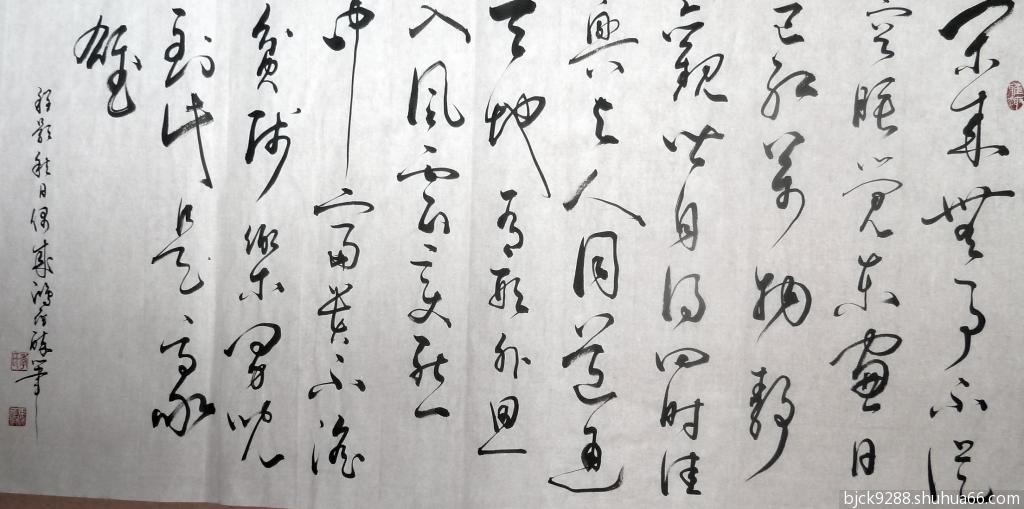 闲来無事不從
容睡觉东窗日
已红萬物靜
觀皆自得四时佳
興与人同道通
天地有形外思
入风云变態
中富貴不淫
貧賤樂男兒
到此是豪
雄
程颢秋日偶成
bjck9288.shuhua66.com